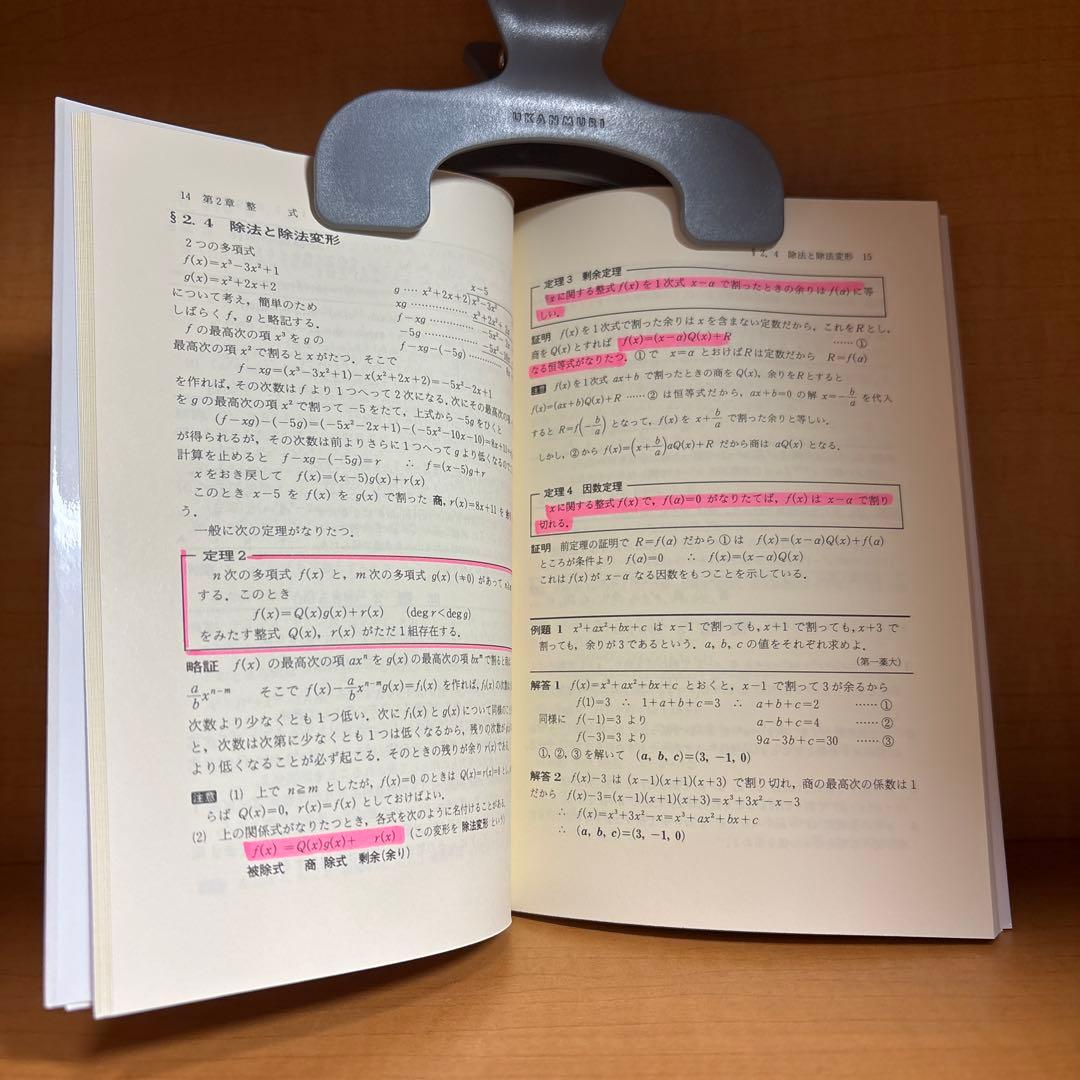 UKANMURI
14 第2章 整 式
§2.4 除法と除法変形
2つの多項式
f(x)=x³−3x²+1
g(x)=x²+2x+2
について考え，簡単のため
しばらく f, g と略記する．
f の最高次の項 x³ を g の
最高次の項 x² で割ると x がたつ．そこで
x−5
g …… x²+2x+2)x³−3x²
xg …………… x³+2x²+2x
f−xg …………… −5x²−2x
−5g …………… −5x²−10x
f−xg−(−5g) ……………
f−xg=(x³−3x²+1)−x(x²+2x+2)=−5x²−2x+1
を作れば，その次数は f より1つへって2次になる．次にその最高次の項
を g の最高次の項 x² で割って −5 をたて，上式から −5g をひくと
(f−xg)−(−5g)=(−5x²−2x+1)−(−5x²−10x−10)=8x+11
が得られるが，その次数は前よりさらに1つへって g より低くなるので
計算を止めると f−xg−(−5g)=r ∴ f=(x−5)g+r
x をおき戻して f(x)=(x−5)g(x)+r(x)
このとき x−5 を f(x) を g(x) で割った 商，r(x)=8x+11 を
う．
一般に次の定理がなりたつ．
定理2
n次の多項式 f(x) と，m次の多項式 g(x) (≠0) があって
する．このとき
f(x)=Q(x)g(x)+r(x) (deg r<deg g)
をみたす整式 Q(x), r(x) がただ1組存在する．
略証 f(x) の最高次の項 axⁿ を g(x) の最高次の項 bxᵐ で割ると商は
a/b xⁿ⁻ᵐ そこで f(x)−a/b xⁿ⁻ᵐg(x)=f₁(x) を作れば，f₁(x) の次数は
次数より少なくとも1つ低い．次に f₁(x) と g(x) について同様のこと
と，次数は次第に少なくとも1つは低くなるから，残りの次数が
より低くなることが必ず起こる．そのときの残りが余り r(x) である．
注意 (1) 上で n≧m としたが，f(x)=0 のときは Q(x)=r(x)=0 とし，
らば Q(x)=0, r(x)=f(x) としておけばよい．
(2) 上の関係式がなりたつとき，各式を次のように名付けることがある．
f(x) =Q(x)g(x)+ r(x) (この変形を 除法変形 という)
被除式 商 除式 剰余(余り)
§2.4 除法と除法変形 15
定理3 剰余定理
x に関する整式 f(x) を1次式 x−α で割ったときの余りは f(α) に等
しい．
証明 f(x) を1次式で割った余りは x を含まない定数だから，これを R とし，
商を Q(x) とすれば f(x)=(x−α)Q(x)+R …… ①
なる恒等式がなりたつ．①で x=α とおけば R は定数だから R=f(α)
注意 f(x) を1次式 ax+b で割ったときの商を Q(x)，余りを R とすると
f(x)=(ax+b)Q(x)+R …… ② は恒等式だから，ax+b=0 の解 x=−b/a を代入
すると R=f(−b/a) となって，f(x) を x+b/a で割った余りと等しい．
しかし，②から f(x)=(x+b/a)aQ(x)+R だから商は aQ(x) となる．
定理4 因数定理
x に関する整式 f(x) で，f(α)=0 がなりたてば，f(x) は x−α で割り
切れる．
証明 前定理の証明で R=f(α) だから ① は f(x)=(x−α)Q(x)+f(α)
ところが条件より f(α)=0 ∴ f(x)=(x−α)Q(x)
これは f(x) が x−α なる因数をもつことを示している．
例題1 x³+ax²+bx+c は x−1 で割っても，x+1 で割っても，x+3 で
割っても，余りが3であるという．a, b, c の値をそれぞれ求めよ．
(第一薬大)
解答1 f(x)=x³+ax²+bx+c とおくと，x−1 で割って3が余るから
f(1)=3 ∴ 1+a+b+c=3 ∴ a+b+c=2 …… ①
同様に f(−1)=3 より a−b+c=4 …… ②
f(−3)=3 より 9a−3b+c=30 …… ③
①，②，③を解いて (a, b, c)=(3, −1, 0)
解答2 f(x)−3 は (x−1)(x+1)(x+3) で割り切れ，商の最高次の係数は1
だから f(x)−3=(x−1)(x+1)(x+3)=x³+3x²−x−3
∴ f(x)=x³+3x²−x=x³+ax²+bx+c
∴ (a, b, c)=(3, −1, 0)